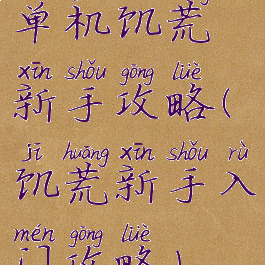 单机饥荒
xīn shǒu gōng lüè
新手攻略(
jī huāng xīn shǒu rù
饥荒新手入
mén gōng lüè
门攻略)